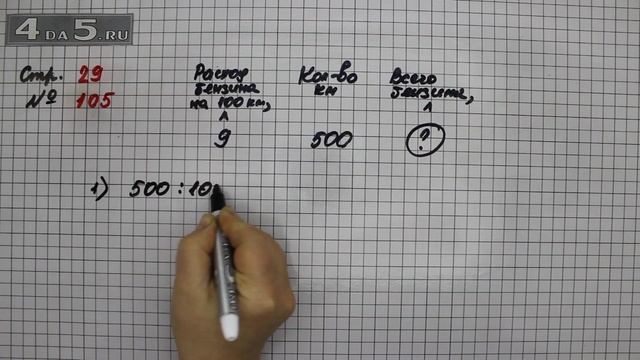 4 DA 5.RU
Стр. 29
№ 105
Расход бензина на 100 км, л
Кол-во км
Всего бензина, л
9 500 ?
1) 500 : 10